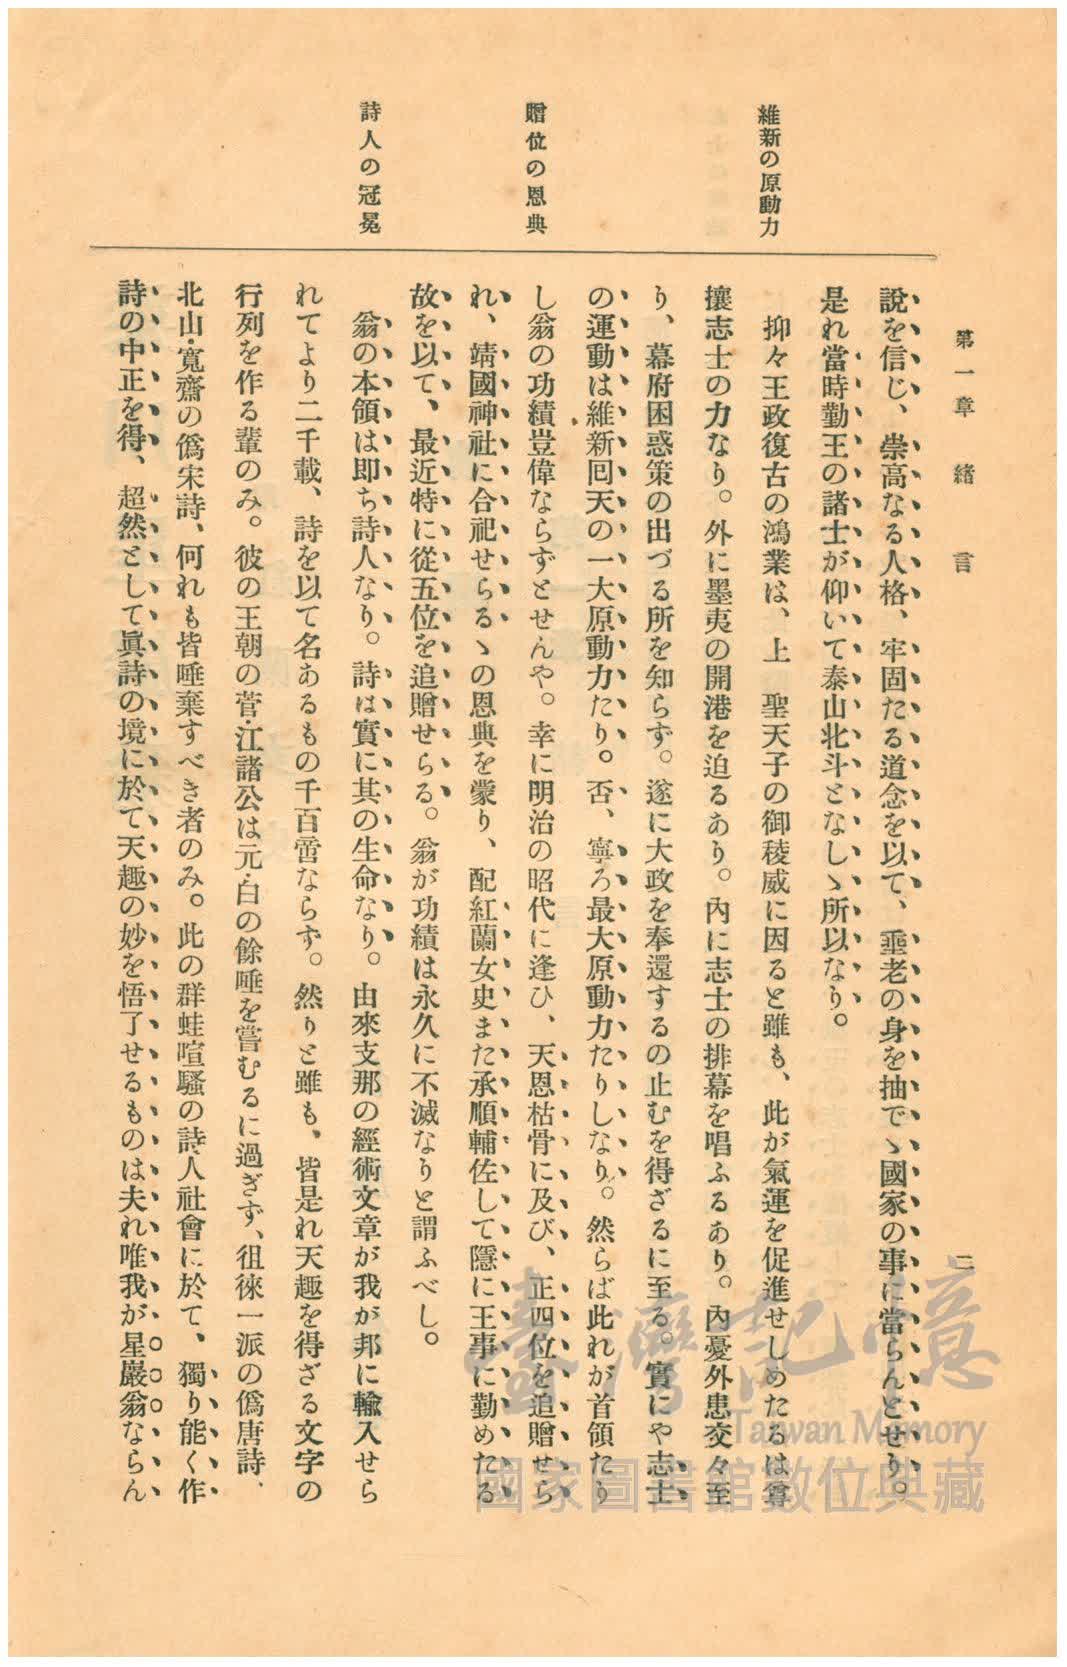 第一章 緒言
二
維新の原動力
贈位の恩典
詩人の冠冕
說を信じ、崇高なる人格、牢固たる道念を以て、垂老の身を抽でゝ國家の事に當らんとせり。
是れ當時勤王の諸士が仰いで泰山北斗となしゝ所以なり。
抑々王政復古の鴻業は、上　聖天子の御稜威に因ると雖も、此が氣運を促進せしめたるは尊
攘志士の力なり。外に墨夷の開港を迫るあり。內に志士の排幕を唱ふるあり。內憂外患交々至
り、幕府困惑策の出づる所を知らず。遂に大政を奉還するの止むを得ざるに至る。實にや志士
の運動は維新回天の一大原動力たり。否、寧ろ最大原動力たりしなり。然らば此れが首領たり
し翁の功績豈偉ならずとせんや。幸に明治の昭代に逢ひ、天恩枯骨に及び、正四位を追贈せら
れ、靖國神社に合祀せらるゝの恩典を蒙り、配紅蘭女史また承順輔佐して隱に王事に勤めたる
故を以て、最近特に從五位を追贈せらる。翁が功績は永久に不滅なりと謂ふべし。
翁の本領は卽ち詩人なり。詩は實に其の生命なり。由來支那の經術文章が我が邦に輸入せら
れてより二千載、詩を以て名あるもの千百啻ならず。然りと雖も、皆是れ天趣を得ざる文字の
行列を作る輩のみ。彼の王朝の菅・江諸公は元・白の餘唾を嘗むるに過ぎず、徂徠一派の僞唐詩、
北山・寬齋の僞宋詩、何れも皆唾棄すべき者のみ。此の群蛙喧騷の詩人社會に於て、獨り能く作
詩の中正を得、超然として眞詩の境に於て天趣の妙を悟了せるものは夫れ唯我が星巖翁ならん
臺灣記憶
Taiwan Memory
國家圖書館數位典藏